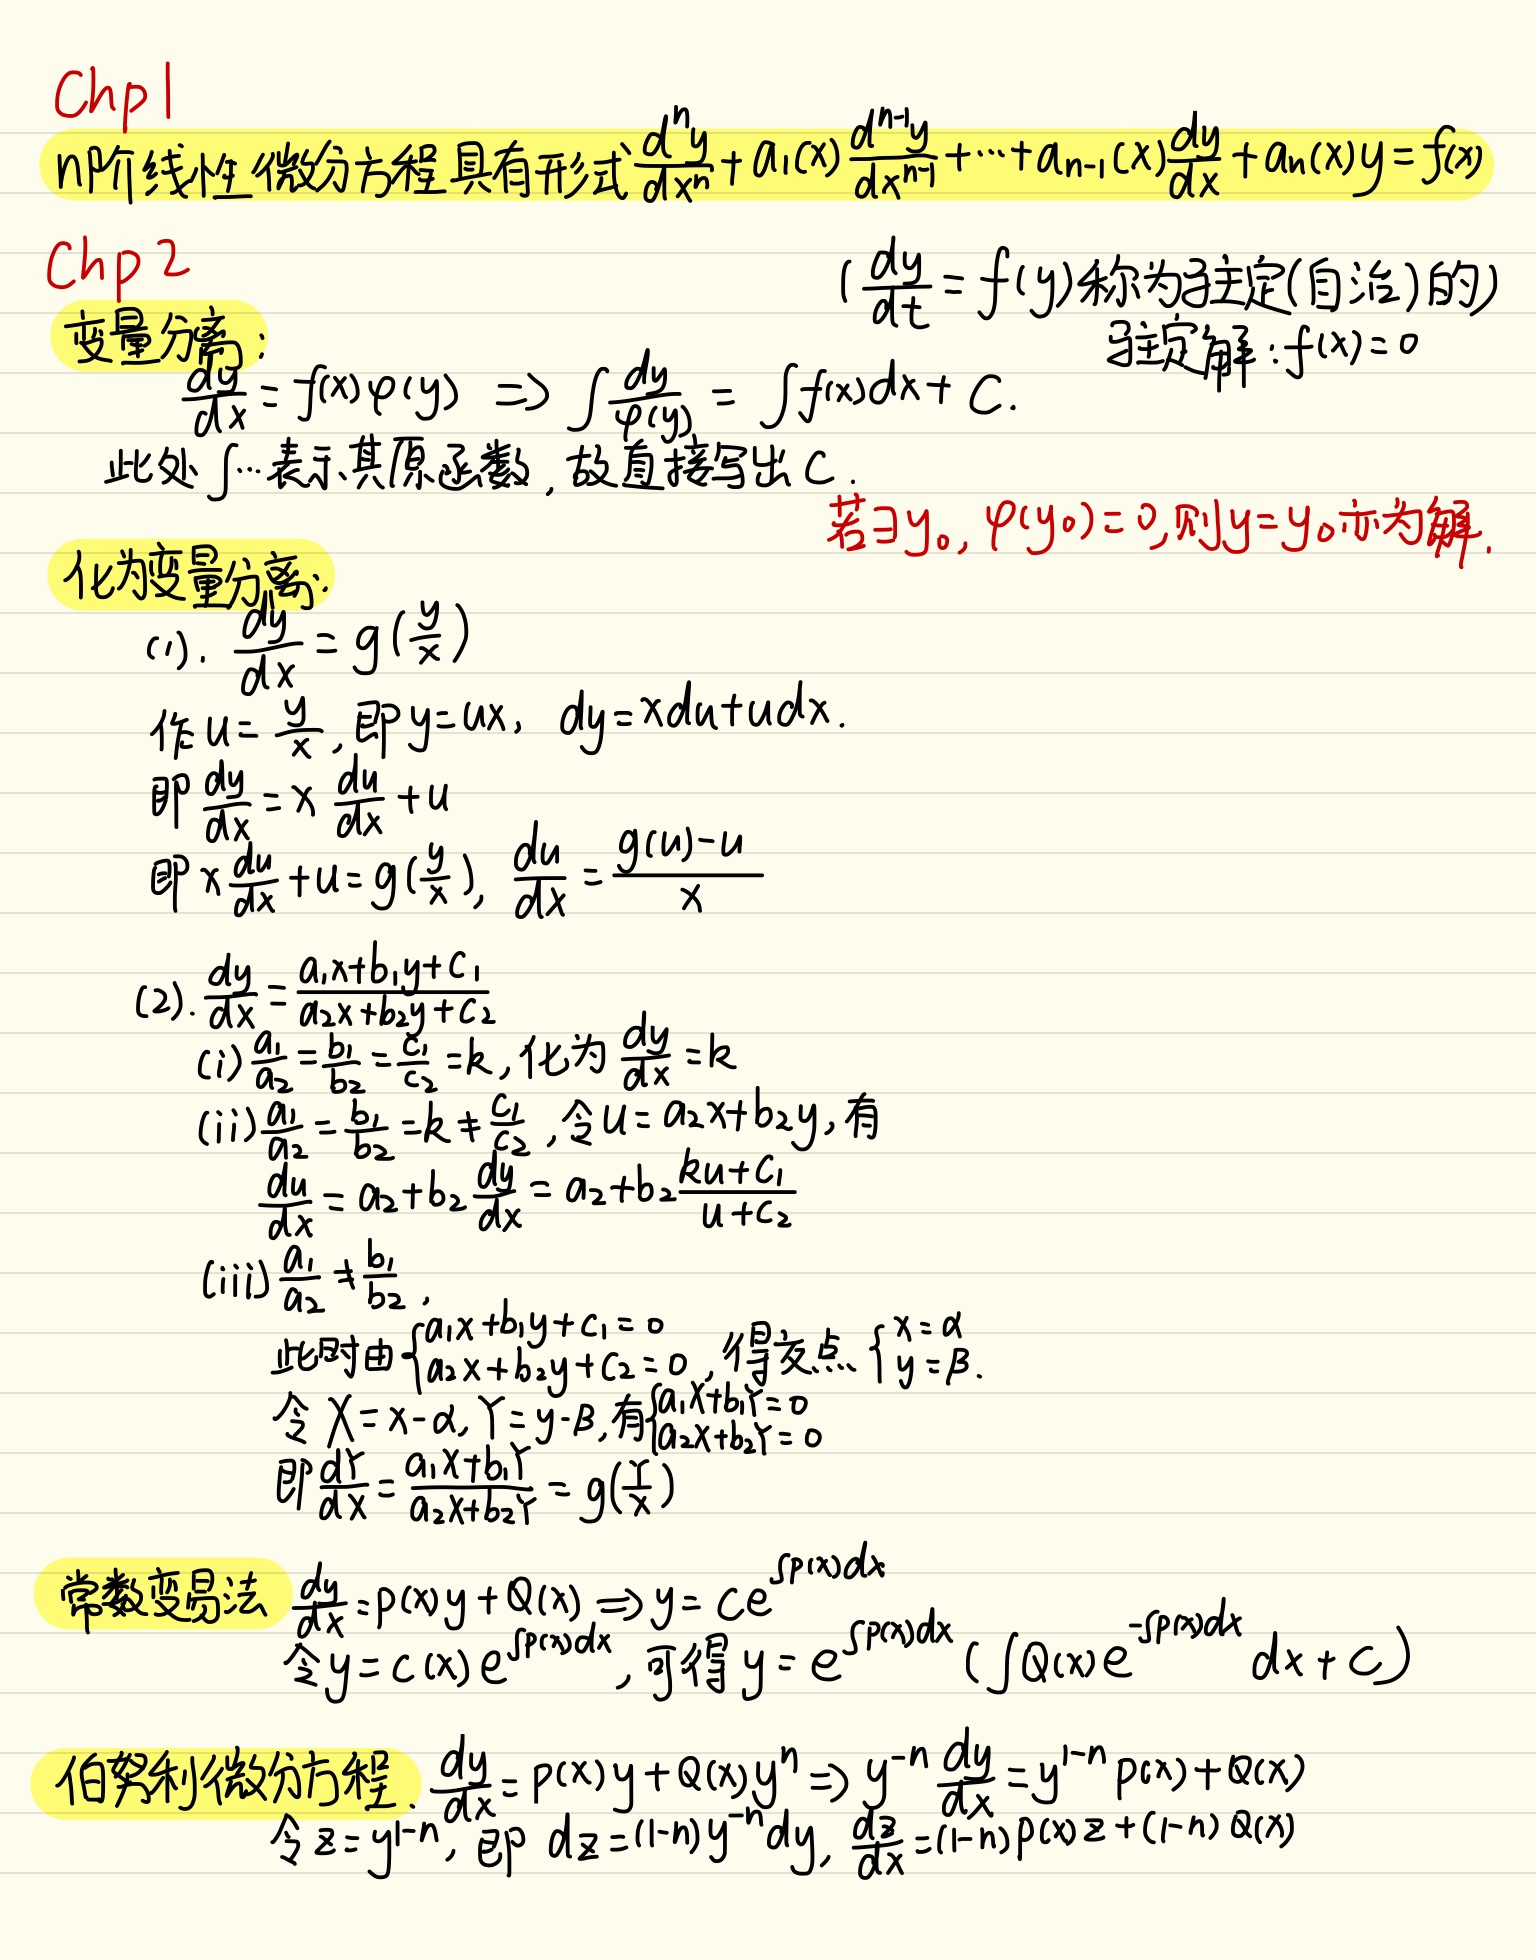 Chp1
n阶线性微分方程具有形式 $\frac{d^n y}{dx^n} + a_1(x)\frac{d^{n-1}y}{dx^{n-1}} + \cdots + a_{n-1}(x)\frac{dy}{dx} + a_n(x)y = f(x)$
Chp2
($\frac{dy}{dt} = f(y)$ 称为驻定(自治)的)
驻定解: $f(x) = 0$
变量分离:
$\frac{dy}{dx} = f(x)\varphi(y) \Rightarrow \int \frac{dy}{\varphi(y)} = \int f(x)dx + C.$
此处 $\int \cdots$ 表示其原函数, 故直接写出 C.
若∃$y_0$, $\varphi(y_0) = 0$, 则 $y = y_0$ 亦为解.
化为变量分离:
(1). $\frac{dy}{dx} = g(\frac{y}{x})$
作 $u = \frac{y}{x}$, 即 $y = ux$, $dy = xdu + udx$.
即 $\frac{dy}{dx} = x\frac{du}{dx} + u$
即 $x\frac{du}{dx} + u = g(\frac{y}{x})$, $\frac{du}{dx} = \frac{g(u) - u}{x}$
(2). $\frac{dy}{dx} = \frac{a_1x + b_1y + c_1}{a_2x + b_2y + c_2}$
(i) $\frac{a_1}{a_2} = \frac{b_1}{b_2} = \frac{c_1}{c_2} = k$, 化为 $\frac{dy}{dx} = k$
(ii) $\frac{a_1}{a_2} = \frac{b_1}{b_2} = k \neq \frac{c_1}{c_2}$, 令 $u = a_2x + b_2y$, 有
$\frac{du}{dx} = a_2 + b_2\frac{dy}{dx} = a_2 + b_2\frac{ku + c_1}{u + c_2}$
(iii) $\frac{a_1}{a_2} \neq \frac{b_1}{b_2}$,
此时由 $\begin{cases} a_1x + b_1y + c_1 = 0 \\ a_2x + b_2y + c_2 = 0 \end{cases}$, 得交点 $\begin{cases} x = \alpha \\ y = \beta \end{cases}$.
令 $X = x - \alpha$, $Y = y - \beta$, 有 $\begin{cases} a_1X + b_1Y = 0 \\ a_2X + b_2Y = 0 \end{cases}$
即 $\frac{dY}{dX} = \frac{a_1X + b_1Y}{a_2X + b_2Y} = g(\frac{Y}{X})$
常数变易法 $\frac{dy}{dx} = P(x)y + Q(x) \Rightarrow y = ce^{\int P(x)dx}$
令 $y = c(x)e^{\int P(x)dx}$, 可得 $y = e^{\int P(x)dx}(\int Q(x)e^{-\int P(x)dx}dx + C)$
伯努利微分方程. $\frac{dy}{dx} = P(x)y + Q(x)y^n \Rightarrow y^{-n}\frac{dy}{dx} = y^{1-n}P(x) + Q(x)$
令 $z = y^{1-n}$, 即 $dz = (1-n)y^{-n}dy$, $\frac{dz}{dx} = (1-n)P(x)z + (1-n)Q(x)$